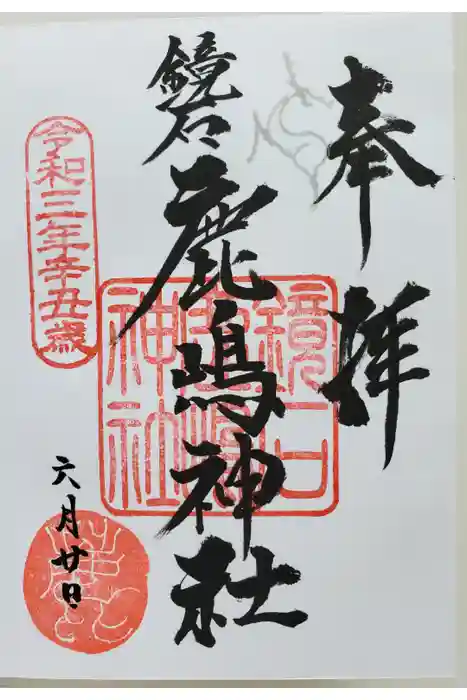 奉拝
鏡石
鹿嶋神社
鏡石鹿嶋神社
令和三年辛丑歳
六月廿日